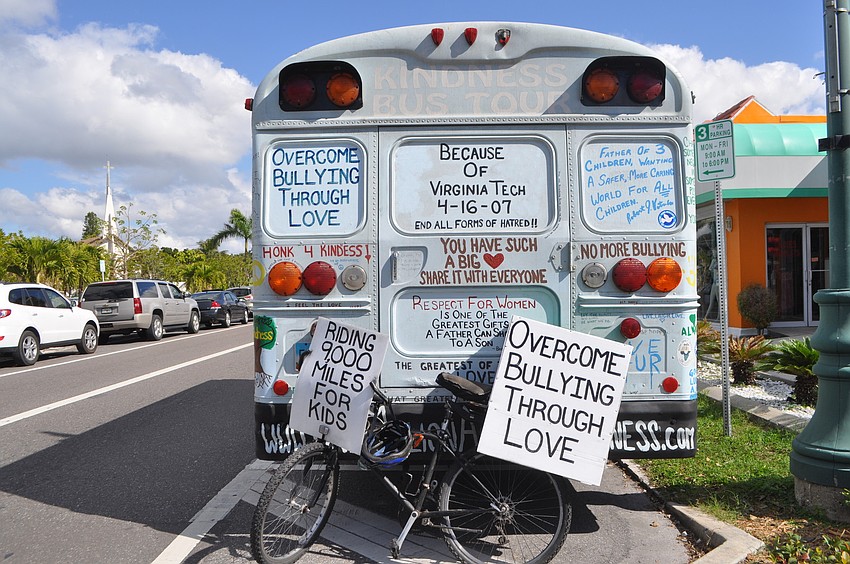 KINDNESS
BUS TOUR
OVERCOME
BULLYING
THROUGH
LOVE
BECAUSE
OF
VIRGINIA TECH
4-16-07
END ALL FORMS OF HATRED!!
FATHER OF 3
CHILDREN, WANTING
A SAFER, MORE CARING
WORLD FOR ALL
CHILDREN.
3 HR
PARKING
MON - FRI
9:00AM
to 6:00PM
HONK 4 KINDESS!
YOU HAVE SUCH
A BIG
SHARE IT WITH EVERYONE
NO MORE BULLYING
RESPECT FOR WOMEN
IS ONE OF THE
GREATEST GIFTS
A FATHER CAN SHOW
TO A SON.
THE GREATEST OF
LOVE
RIDING
9,000
MILES
FOR
KIDS
OVERCOME
BULLYING
THROUGH
LOVE
NESS.COM